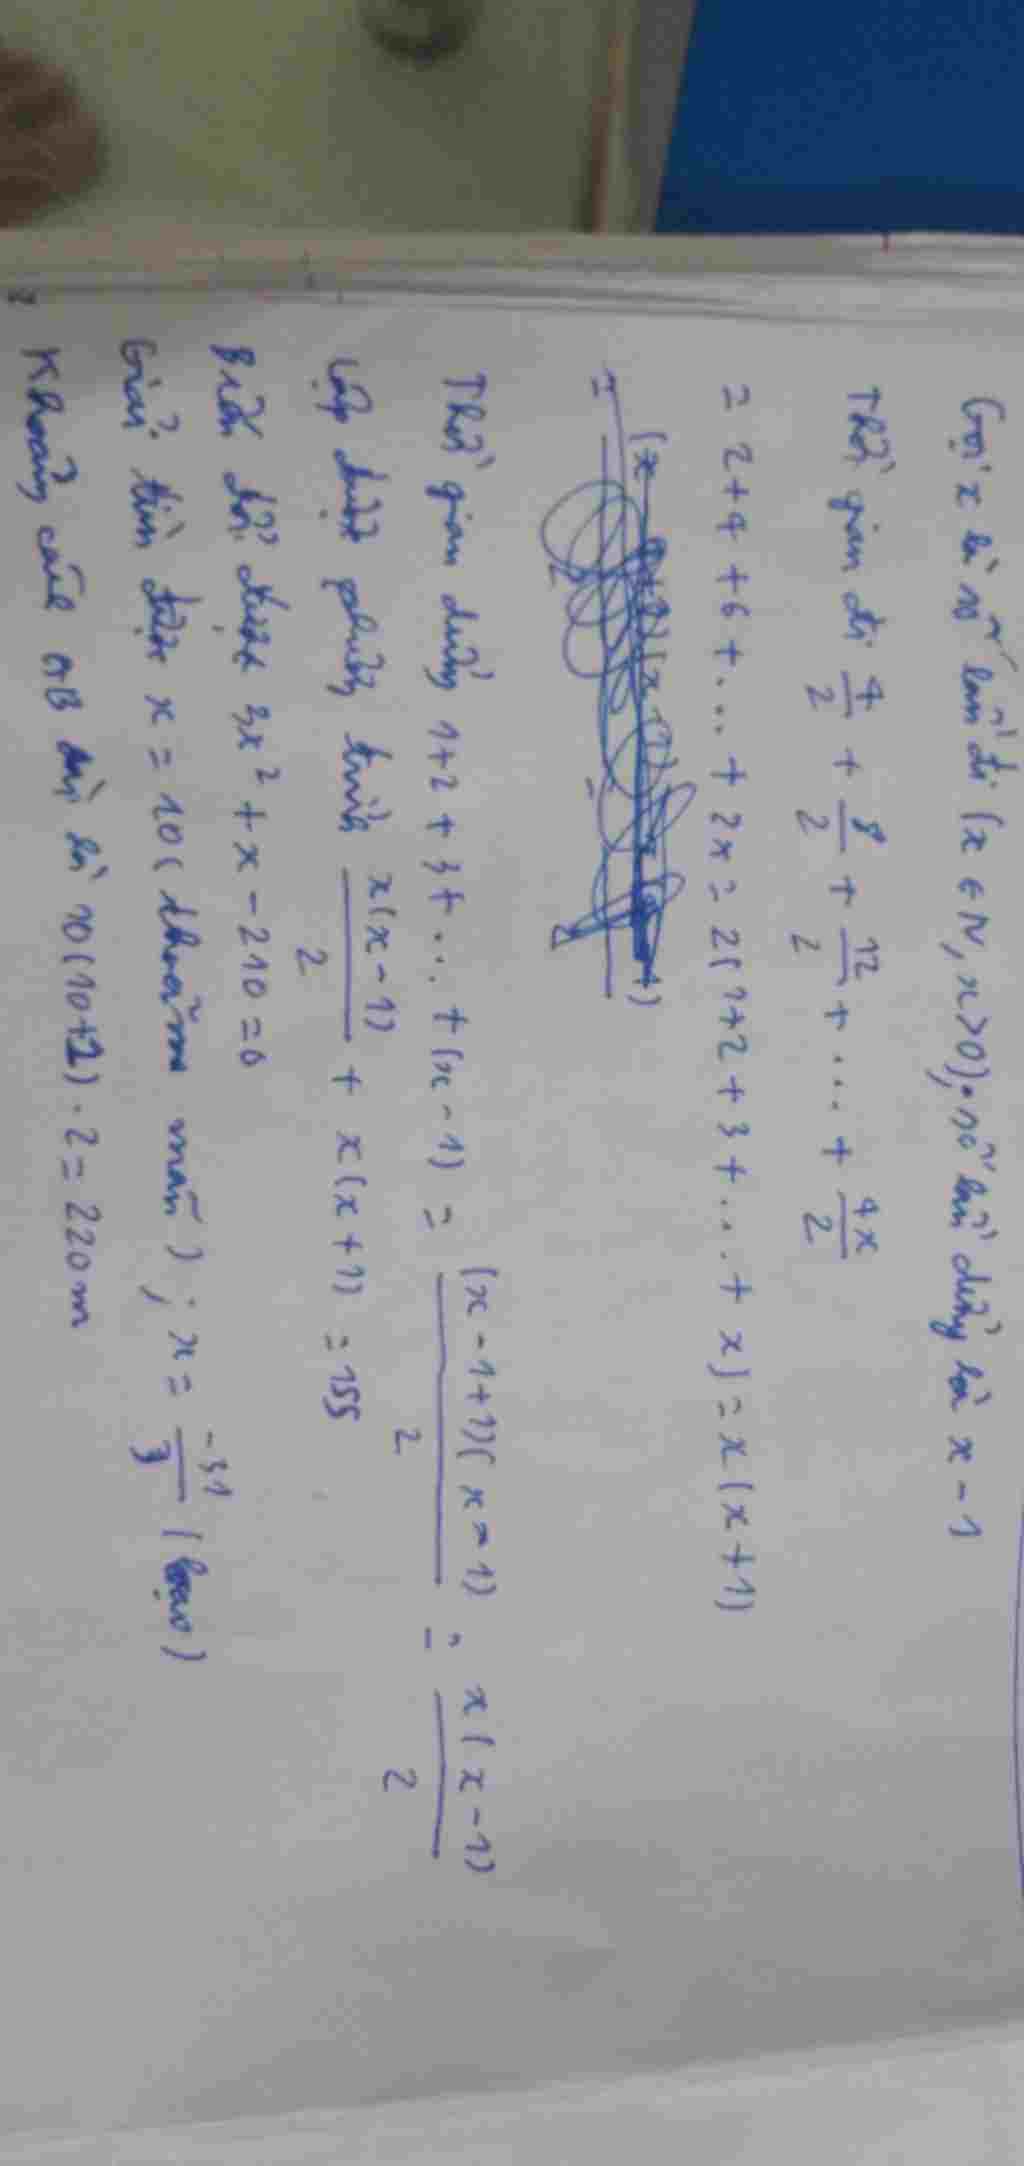 Gọi x là số lần đi (x ∈ N, x > 0), số lần dừng là x - 1
Thời gian đi 4/2 + 8/2 + 12/2 + ... + 4x/2
= 2 + 4 + 6 + ... + 2x = 2(1 + 2 + 3 + ... + x) = x(x + 1)
Thời gian dừng 1 + 2 + 3 + ... + (x - 1) = (x - 1 + 1)(x - 1)/2 = x(x - 1)/2
Lập được phương trình x(x - 1)/2 + x(x + 1) = 155
Biến đổi được 3x² + x - 310 = 0
Giải tìm được x = 10 (thoã mãn) ; x = -31/3 (loại)
Khoảng cách AB dài là 10(10+1) . 2 = 220 m